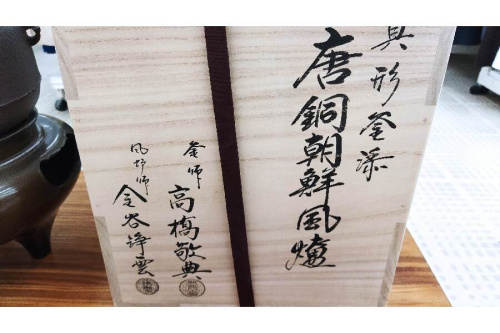 真形釜添
唐銅朝鮮風爐
釜師 高橋敬典
風炉師 金谷淨雲